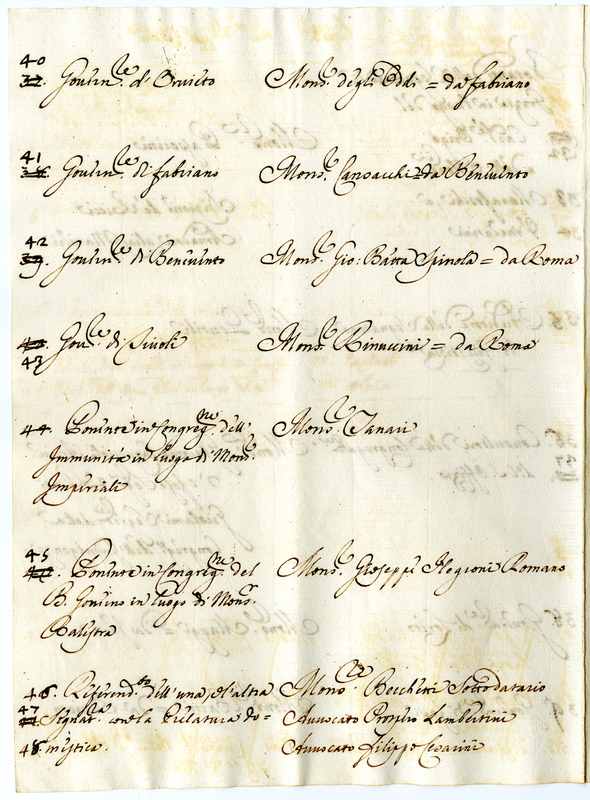 40
37. Gouern.re d'Oruieto Mons.r degli Oddi = da fabriano
41
38. Gouern.re di fabriano Mons.r Cansacchi = da Beneuento
42
39. Gouern.re di Beneuento Mons.r Gio: Batta Spinola = da Roma
Gou.re di Tiuoli Mons.r Rinuccini = da Roma
43
44. Ponente in Congreg.ne dell' Mons.r Tanari
Immunità in luogo di Mons.r
Imperiali
45
Ponente in Congreg.ne del Mons.r Gioseppe Negroni Romano
B. Gouerno in luogo di Mons.r
Balestra
46. Referend.o dell'una, e l'altra Mons.r Becchetti Sottodatario
47
Segnat.a con la Prelatura do= Auuocato Prospero Lambertini
48. mestica. Auuocato filippo Cesarini